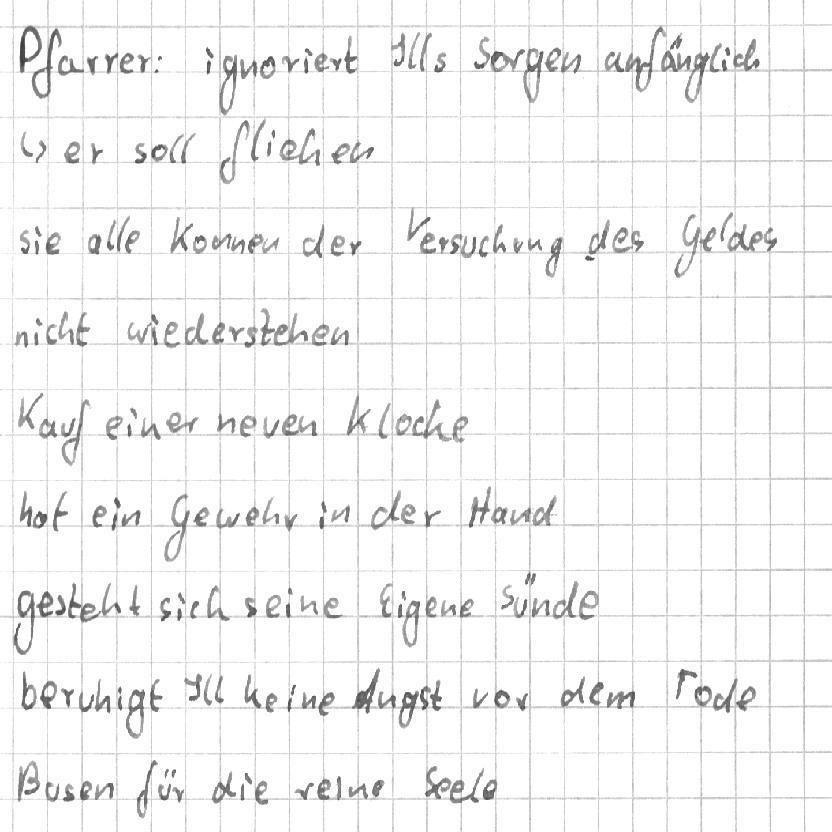 Pfarrer: ignoriert Ills Sorgen anfänglich
↳ er soll fliehen
sie alle konnen der Versuchung des Geldes
nicht wiederstehen
Kauf einer neuen Klocke
hat ein Gewehr in der Hand
gesteht sich seine Eigene Sünde
beruhigt Ill keine Angst vor dem Tode
Busen für die reine Seele